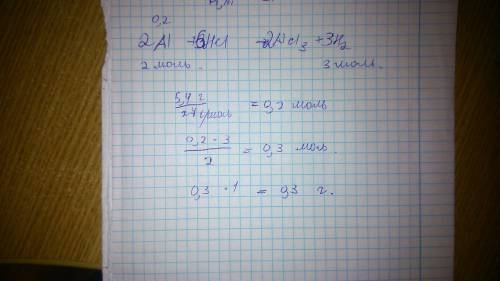 0,2
2Al + 6HCl → 2AlCl₃ + 3H₂
2 моль. 3 моль.
5,4 г / 27 г/моль = 0,2 моль
0,2 · 3 / 2 = 0,3 моль.
0,3 · 1 = 0,3 г.